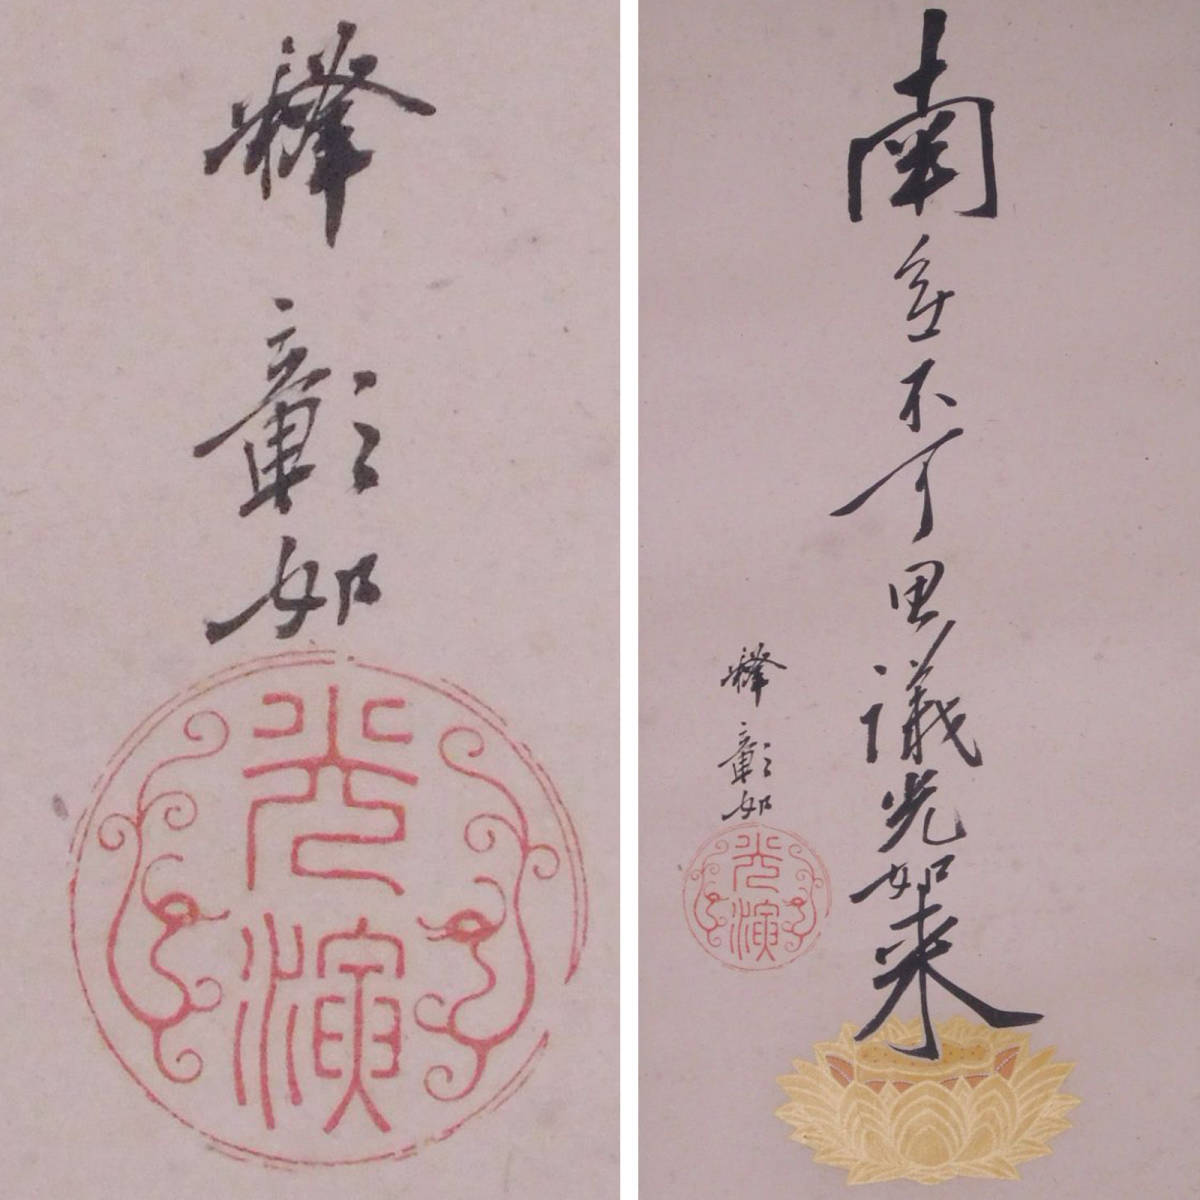 釋彰如
光演
南无不可思議光如来
釋彰如
光演